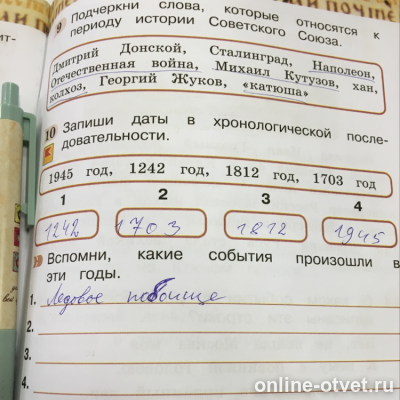 ПОЧТЕ
ит-
9 Подчеркни слова, которые относятся к
периоду истории Советского Союза.
Дмитрий Донской, Сталинград, Наполеон,
Отечественная война, Михаил Кутузов, хан,
колхоз, Георгий Жуков, «катюша»
10 Запиши даты в хронологической после-
довательности.
1945 год, 1242 год, 1812 год, 1703 год
1 2 3 4
1242 1703 1812 1945
Вспомни, какие события произошли в
эти годы.
1. Ледовое побоище
2.
3.
4.
online-otvet.ru